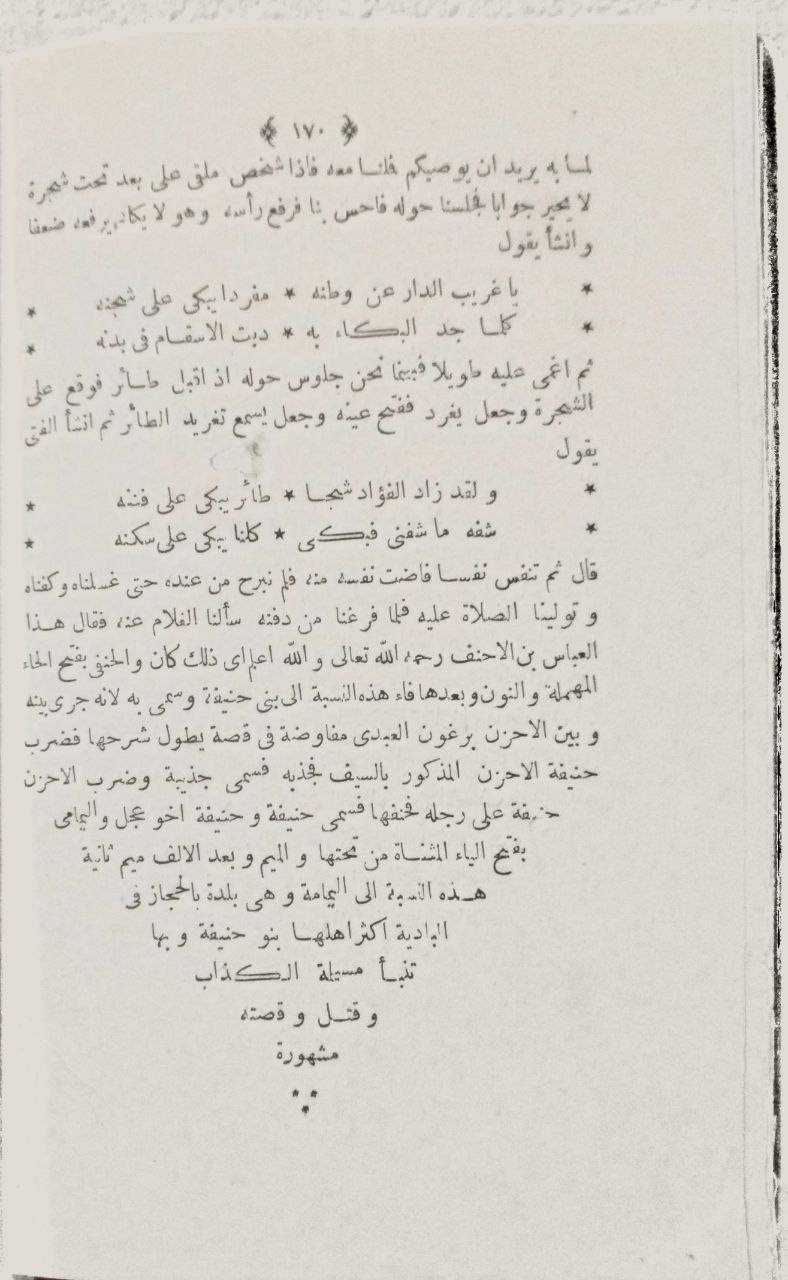 ﴿ ١٧٠ ﴾
لمـا به يريد ان يوصيكم فملنـا معه فاذا شخص ملقى على بعد تحت شجرة
لا يحير جوابا فجلسنا حوله فاحس بنا فرفع رأسه وهو لا يكاد يرفعه ضعفا
وانشأ يقول
* يا غريب الدار عن وطنه * مفردا يبكى على شجنه *
* كلمـا جد البكـاء به * دبت الاسقـام فى بدنه *
ثم اغمى عليه طويلا فبينما نحن جلوس حوله اذ اقبل طـائر فوقع على
الشجرة وجعل يغرد ففتح عينه وجعل يسمع تغريد الطائر ثم انشأ الفتى
يقول
* ولقد زاد الفؤاد شجـا * طائر يبكى على فننه *
* شفه ما شفنى فبكـى * كلنا يبكى على سكنه *
قال ثم تنفس نفسـا فاضت نفسه منه فلم نبرح من عنده حتى غسلناه وكفناه
وتولينا الصلاة عليه فلما فرغنا من دفنه سألنا الغلام عنه فقال هـذا
العباس بن الاحنف رحمه الله تعالى والله اعلم اى ذلك كان والحنفى بفتح الحاء
المهملة والنون وبعدها فاء هذه النسبة الى بنى حنيفة وسمى به لانه جرى بينه
وبين الاحزن برغون العبدى مفاوضة فى قصة يطول شرحها فضرب
حنيفة الاحزن المذكور بالسيف فجذبه فسمى جذيبة وضرب الاحزن
حنيفة على رجله فحنفها فسمى حنيفة وحنيفة اخو عجل واليمامى
بفتح الياء المثنـاة من تحتها والميم وبعد الالف ميم ثانية
هـذه النسبة الى اليمامة وهى بلدة بالحجاز فى
البادية اكثر اهلهـا بنو حنيفة وبها
تنبـأ مسيلة الـكذاب
وقتـل وقصته
مشهورة